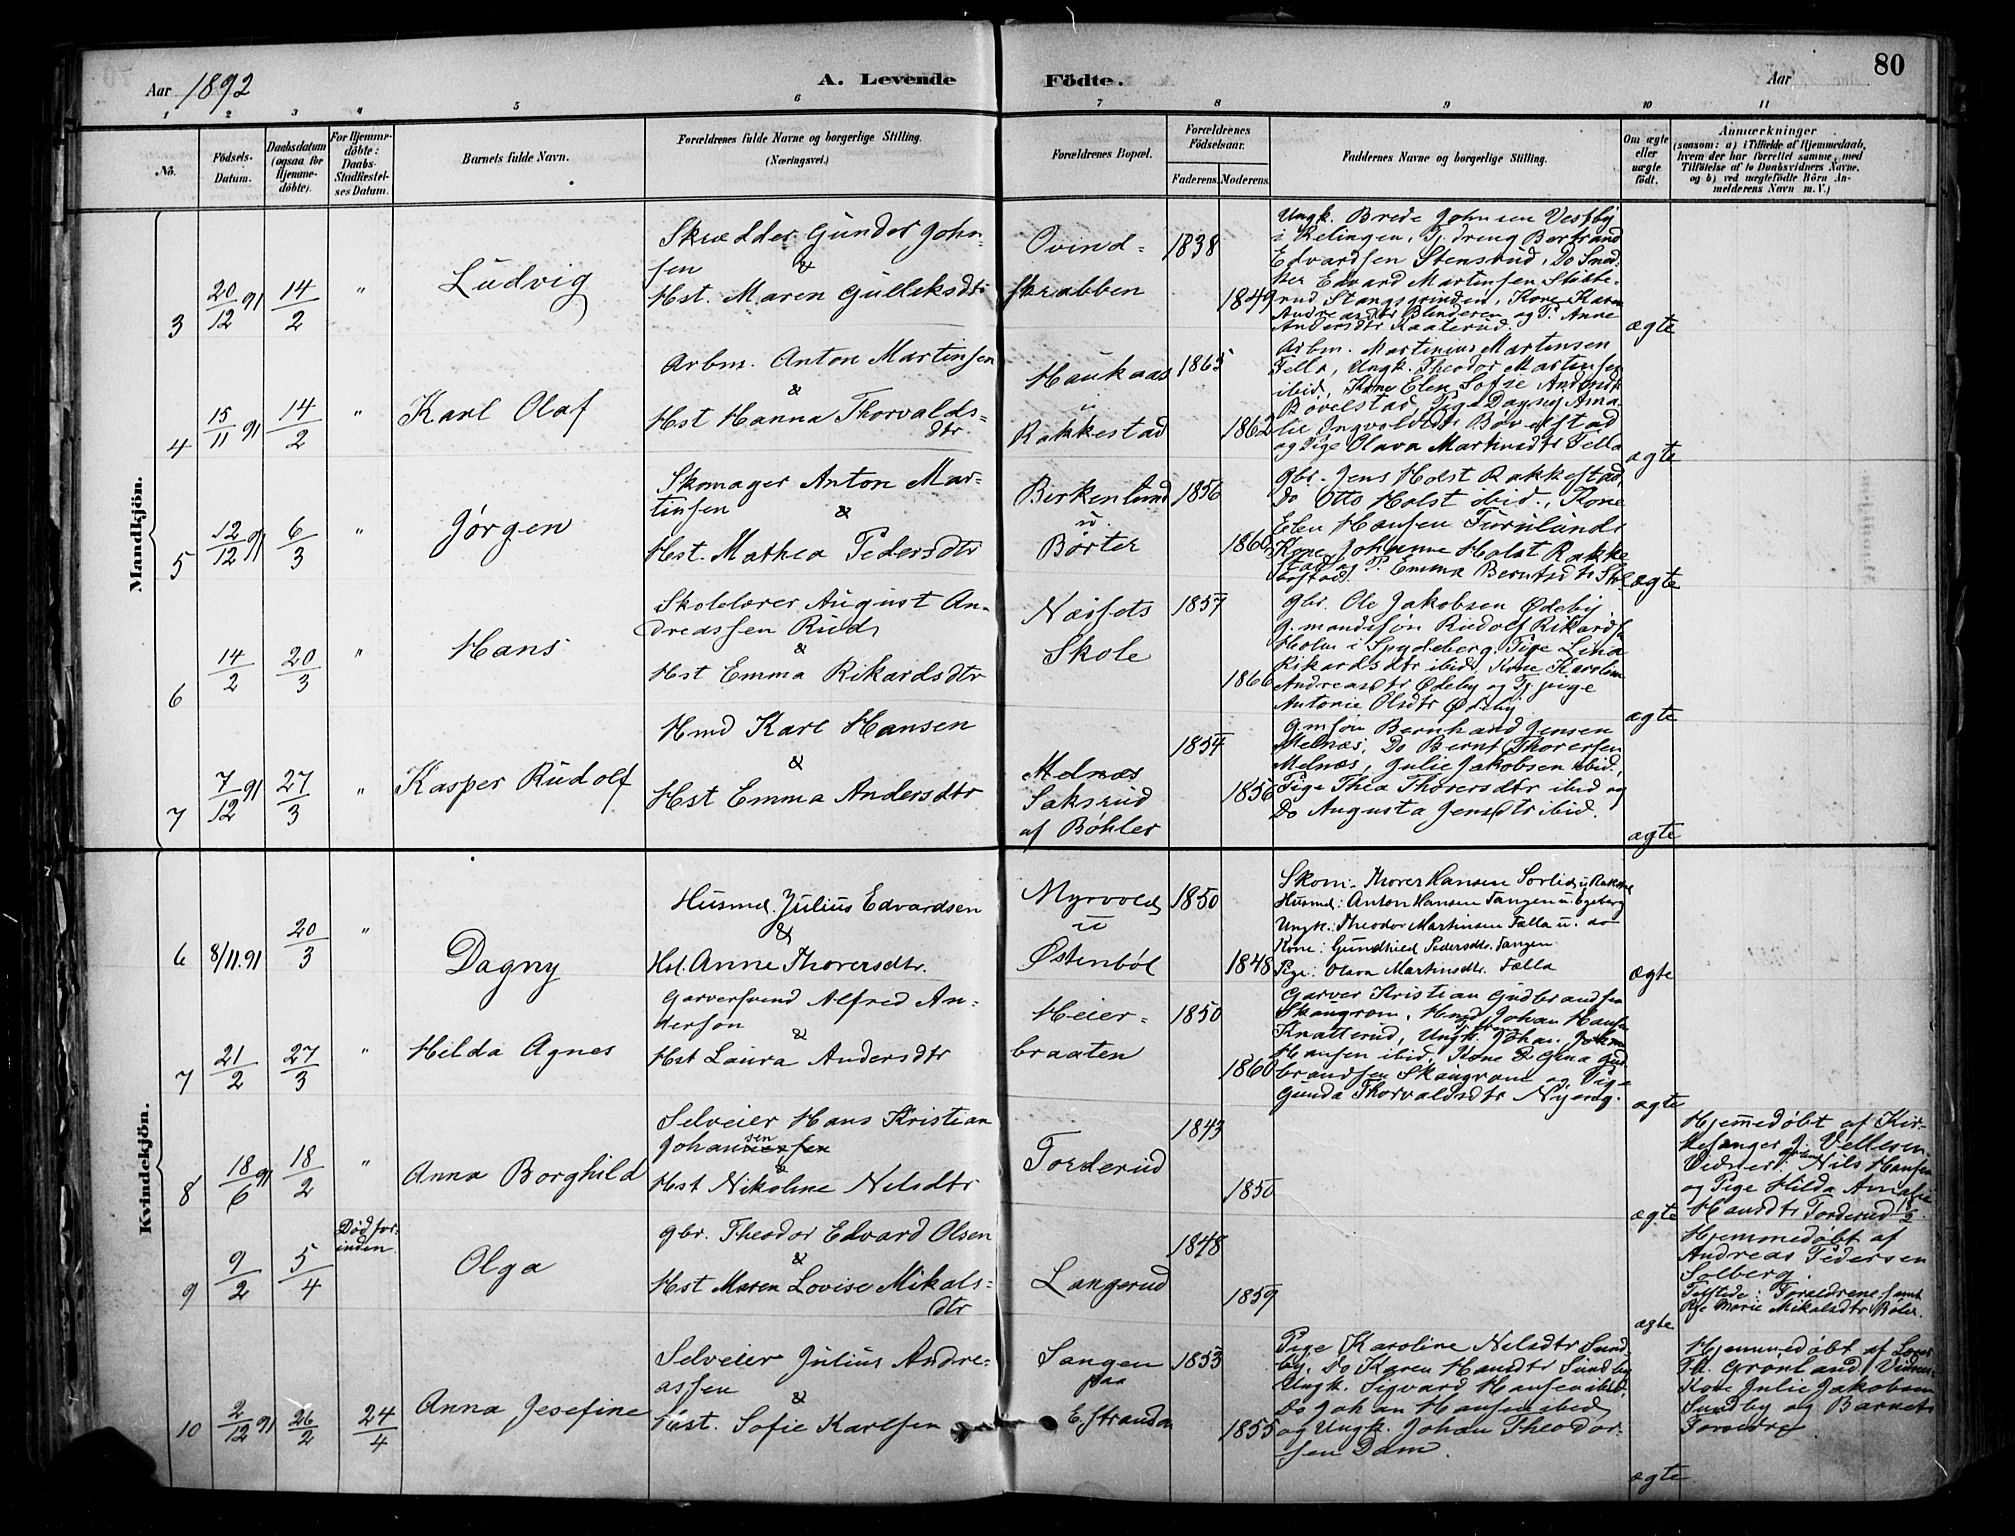 80
Aar 1892
A. Levende Födte.
Aar
1 2 3 4 5 6 7 8 9 10 11
Nö.
Födsels-Datum.
Daabsdatum (ogsaa for Hjemme-döbte).
For Hjemme-döbte: Daabs-Stadfæstel-ses Datum.
Barnets fulde Navn.
Forældrenes fulde Navne og borgerlige Stilling. (Næringsvei.)
Forældrenes Bopæl.
Forældrenes Födselsaar.
Faderens. Moderens.
Faddernes Navne og borgerlige Stilling.
Om ægte eller uægte födt.
Anmærkninger
(saasom: a) i Tilfælde af Hjemmedaab, hvem der har forrettet samme, med Tilföielse af to Daabsvidners Navne, og b) ved uægtefödte Börn An-melderens Navn m. V.)
Mandkjön.
3 20/12 91 14/2 " Ludvig
Skrædder Gunder John-
sen &
Hst. Maren Gullaksdtr
Ovind-
skrabben
1838 1849
Ungk. Brede Johnsen Vestby
i Relingen, Tj.dreng Bertrand
Edvardsen Stensrud, Do Sned-
ker Edvard Martinsen Stubbe-
rud Stangsgrinden, Kone Karen
Andreasdtr Blinderen og P. Anne
Andersdtr Kaaterud.
ægte
4 15/11 91 14/2 " Karl Olaf
Arbm. Anton Martinsen
&
Hst Hanna Thorvalds-
dtr
Haukaas
u
Rakkestad
1865 1862
Arbm. Martinius Martinsen
Fella, Ungk. Theodor Martinsen
ibid, Kone Elen Sofie Andersdtr
Bøvelstad, Pige Dagny Ama-
lie Ingvoldsdtr Bøvelstad
og Pige Olava Martinsdtr Fella
ægte
5 12/12 91 6/3 " Jørgen
Skomager Anton Mar-
tinsen &
Hst. Mathea Pedersdtr
Birkenlund
u.
Børter
1856 1860
Gbr. Jens Holst Rakkestad,
Do Otto Holst ibid., Kone
Elen Hansen Furulund,
Kone Johanne Holst Rakke
stad og P. Emma Berntsdtr
ægte
6 14/2 20/3 " Hans
Skolelærer August An-
dreassen Rud
&
Hst Emma Rikardsdtr
Næssets
Skole
1857 1866
Gbr. Ole Jakobsen Ødeby
G.mandssøn Rudolf Rikards
Holm i Spydeberg, Pige Lina
Rikardsdtr ibid, Kone Karoline
Andreasdtr Ødeby og Tj.pige
Antonie Olsdtr Ødeby.
ægte
7 7/12 91 27/3 " Kasper Rudolf
Hmd Karl Hansen
&
Hst Emma Andersdtr
Melnæs
Saksrud
af Bøhler
1854 1856
Gmsøn Bernhard Jensen
Melnæs, Do Bernt Thorersen
Melnæs, Julie Jakobsen ibid,
Pige Thea Thorersdtr ibid og
Do Augusta Jensdtr ibid.
ægte
Kvindekjön.
6 8/11.91 20/3 " Dagny
Husmd. Julius Edvardsen
&
Hst. Anne Thorersdtr.
Myrvold
u
Østenbøl
1850 1848
Skom. Thorer Hansen Sorlie u. Rakke
Husmd: Anton Hansen Tangen u. Egeberg
Ungk: Theodor Martinsen Fælla u. do
Kone: Gundhild Pedersdtr. Tangen
Pige: Olava Martinsdtr. Fælla
ægte
7 21/2 27/3 " Hilda Agnes
Garversvend Alfred An-
derson &
Hst Laura Andersdtr
Heier-
braaten
1850 1860
Garver Kristian Gudbrandsen
Skaugrom, Hmd Johan Hansen
Knatterud, Ungk. Johan
Hansen ibid, Kone Gina Gud
brandsen Skaugrom og Pige
Gunda Thorvaldsdtr Nyeng.
ægte
8 18/6 91 18/2 " Anna Borghild
Selveier Hans Kristian
Johannessen
&
Hst Nikoline Nilsdtr
Torderud
1843 1850
ægte
Hjemmedøbt af Kir-
kesanger J. Vellesen
Vidner: Nils Hansen
og Pige Hilda Amalie
Hansdtr Torderud 18/2
9 9/2 5/4 Død for-
inden. Olga
Gbr. Theodor Edvard Olsen
&
Hst Maren Lovise Mikals-
dtr
Langerud
1848 1859
ægte
Hjemmedøbt af
Andreas Pedersen
Solberg.
Tilstede: Forældrene samt
Pige Marie Mikalsdtr Bøler.
10 2/12 91 26/2 24/4 Anna Josefine
Selveier Julius Andre-
assen &
Hst. Sofie Karlsen
Sangen
paa
E. Stranda
1853 1855
Pige Karoline Nilsdtr Sund-
by, Do Karen Hansdtr Sundby
Ungk. Sigvard Hansen ibid.
Do Johan Hansen ibid,
og Ungk. Johan Theodor-
sen Dam.
ægte
Hjemmedøbt af Lærer
Th. Grønland, Vidner
Kone Julie Jakobsen
Sundby og Barnets
Forældre